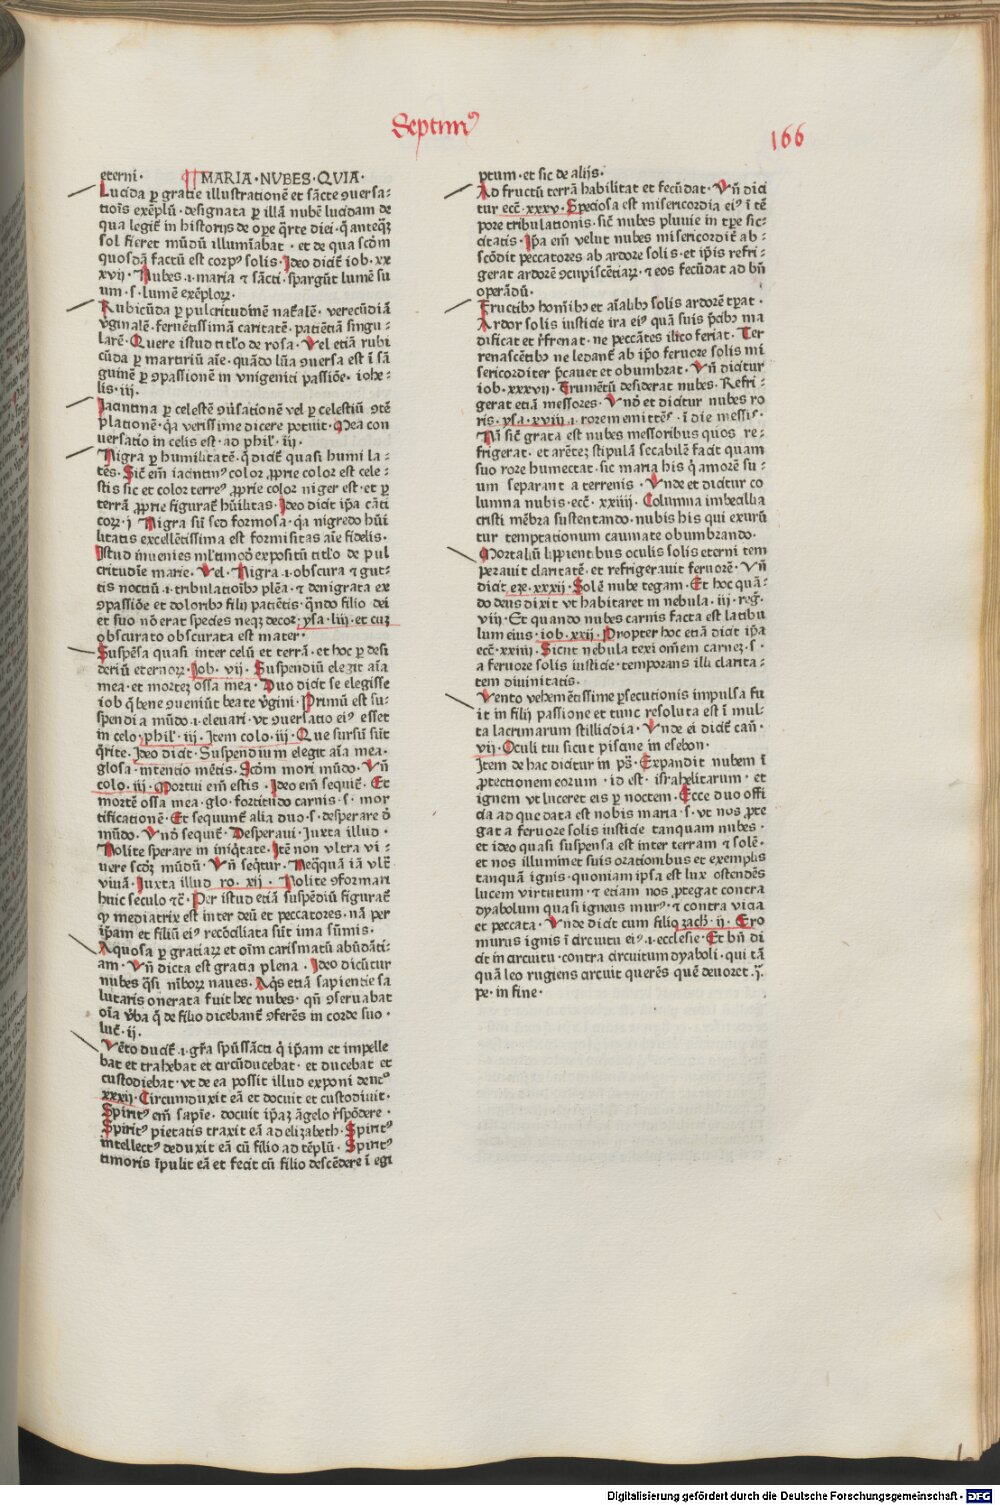 Septimꝰ
166
eterni· ¶ MARIA·NVBES·QVIA·
Lucida ꝑ gratie illustrationē et sācte ꝯuersa⸗
tiōis exēplū· designata ꝑ illā nubē lucidam de
qua legit᷑ in historijs de oꝑe q̄rte diei· q̄ anteq̄ꝫ
sol fieret mūdū illumiābat · et de qua scd̄m
quosdā factū est corpꝰ solis· Ideo dicit᷑ iob· xx
xvij· Nubes·ı·maria et sācti· spargūt lumē su
um·s·lumē exēploꝝ·
Rubicūda ꝑ pulcritudinē nat᷑alē· verecūdiā
v̄ginalē· feruētissimā caritatē· patiētiā singu⸗
larē· Quere istud titl̓o de rosa· Vel etiā rubi
cūda ꝑ martiriū aīe· quādo lūa ꝯuersa est ī sā
guinē ꝑ ꝯpassionē in vnigeniti passiōe· iohe⸗
lis· iij·
Iacintina ꝑ celestē ꝯūsationē vel ꝑ celestiū ꝯtē
platiōnē· q̄a verissime dicere potuit· Mea con
uersatio in celis est· ad phil᷑· iij·
Nigra ꝑ humilitatē· q̄ dicit᷑ quasi humi la⸗
tēs· Sic᷑ em̄ iacintinꝰ color ꝓprie color est cele⸗
stis sic et color terreꝰ ꝓprie color niger est· et ꝑ
terrā ꝓprie figurat᷑ hūilitas· Ideo dicit ip̄a cāti
coꝝ·j Nigra sū sed formosa· q̄a nigredo hūi
litatis excellētissima est formositas aīe fidelis·
Istud inuenies ml̓timodꝭ expositū titl̓o de pul
critudīe marie· Vel· Nigra·ı·obscura ⁊ gut⸗
tis noctiū·ı·tribulatioībꝰ plēa· ⁊ denigrata ex
ꝯpassiōe et doloribꝰ filij patiētis· q̄ndo filio dei
et suo nō erat species neqꝫ decor· ysa·liij·et cuꝫ
obscurato obscurata est mater·
Suspēsa quasi inter celū et terrā· et hoc ꝑ desi
deriū eternoꝝ· Iob· vij· Suspendiū elegit aīa
mea· et morteꝫ ossa mea· Duo dicit se elegisse
iob q̄ bene ꝯueniūt beate v̄gini· Primū est su⸗
spendi a mūdo·ı·eleuari· vt ꝯuersatio eiꝰ esset
in celo· phil᷑· iij· Item colo·iij· Que sursū sūt
q̄rite· Ideo dicit· Suspendium elegit aīa mea·
glosa· intencio mētis· Scd̄m mori mūdo· Vn̄
colo· iij· Mortui em̄ estis· Ideo em̄ sequit᷑· Et
mortē ossa mea· glo· fortitudo carnis·s· mor
tificationē· Et sequunt᷑ alia duo·s·desperare ō
mūdo· Vnō sequit᷑· Desperaui· Iuxta illud·
Nolite sperare in iniq̄tate· Itē non vltra vi⸗
uere scd̄ꝫ mūdū· Vn̄ seq̄tur· Neq̄quā iā vlt᷑
viuā· Iuxta illud ro· xij· Nolite ꝯformari
huic seculo ⁊c̄· Per istud etiā suspēdiū figurat᷑
ꝙ mediatrix est inter deū et peccatores· nā per
ip̄am et filiū eiꝰ recōciliata sūt ima sūmis·
Aquosa ꝑ gratiaꝝ et oīm carismatū abūdāti⸗
am· Vn̄ dicta est gratia plena · Ideo dicūtur
nubes q̄si nīboꝝ naues· Aq̄s etiā sapientie sa
lutaris onerata fuit hec nubes· qn̄ ꝯseruabat
oīa v̄ba q̄ de filio dicebant᷑ ꝯferēs in corde suo·
luc᷑· ij·
Vēto ducit᷑·ı·gr̄a spūssācti q̄ ip̄am et impelle
bat et trahebat et circūducebat· et ducebat et
custodiebat· vt de ea possit illud exponi deutꝰ
xxxij· Circumduxit eā et docuit et custodiuit·
Spiritꝰ em̄ sapīe· docuit ip̄aꝫ āgelo r̄spōdere·
Spiritꝰ pietatis traxit eā ad elizabeth· Spiritꝰ
intellectꝰ deduxit eā cū filio ad tēplū· Spiritꝰ
timoris īpulit eā et fecit cū filio descēdere ī egi
ptum· et sic de alijs·
Ad fructū terrā habilitat et fecūdat· Vn̄ dici
tur ecc᷑· xxxv· Speciosa est misericordia eiꝰ ī tē
pore tribulationis· sic᷑ nubes pluuie in tꝑe sic⸗
citatis· Ip̄a em̄ velut nubes misericordit᷑ ab⸗
scōdit peccatores ab ardore solis· et ip̄is refri⸗
gerat ardorē ꝯcupiscētiaꝝ· ⁊ eos fecūdat ad bn̄
operādū·
Fructibꝰ hom̄ibꝰ et aīalibꝰ solis ardorē tꝑat·
Ardor solis iusticie ira eiꝰ quā suis p̄cibꝰ mi
dificat et r̄frenat· ne peccātes ilico feriat· Ter
renascētibꝰ ne ledant᷑ ab ip̄o feruore solis mi
sericorditer p̄cauet et obumbrat· Vn̄ dicitur
iob·xxxvij· Frumētū desiderat nubes· Refri⸗
gerat etiā messores· Vnō et dicitur nubes ro
ris· ysa·xviij·ı·rorem emittēs ī die messis·
Nā sic᷑ grata est nubes messoribus quos re⸗
frigerat· et arēteꝫ stipulā secabilē facit quam
suo rore humectat· sic maria his q̄ amorē su⸗
um separant a terrenis · Vnde et dicitur co
lumna nubis· ecc᷑· xxiiij· Columna imbecillia
cristi mēbra sustentando· nubis his qui exurū
tur temptationum caumate obumbrando·
Mortaliū lippientibus oculis solis eterni tem
perauit claritatē· et refrigerauit feruorē· Vn̄
dicit᷑ eze·xxxij· Solē nube tegam· Et hoc quā⸗
do deus dixit vt habitaret in nebula· iij·reg᷑·
viij· Et quando nubes carnis facta est latibu
lum eius· iob·xxij· Propter hoc etiā dicit ip̄a
ecc᷑· xxiiij· Sicut nebula texi om̄em carneꝫ·s·
a feruore solis iusticie· temporans illi clarita⸗
tem diuinitatis·
Vento vehemētissime ꝑsecutionis impulsa fu
it in filij passione et tunc resoluta est ī mul⸗
ta lacrimarum stillicidia· Vnde ei dicit᷑ can᷑·
vij· Oculi tui sicut piscine in esebon·
Item de hac dicitur in ps̄· Expandit nubem ī
ꝓtectionem eorum · id est· israhelitarum · et
ignem vt luceret eis ꝑ noctem· Ecce duo offi
cia ad que data est nobis maria·s·vt nos ꝓte
gat a feruore solis iusticie tanquam nubes·
et ideo quasi suspensa est inter terram ⁊ solē·
et nos illuminet suis orationibus et exemplis
tanquā ignis· quoniam ipsa est lux ostendēs
lucem virtutum· ⁊ etiam nos ꝓtegat contra
dyabolum quasi igneus murꝰ· ⁊ contra vicia
et peccata· Vnde dicit cum filio zach᷑· ij· Ero
murus ignis ī circuitu eiꝰ·ı·ecclesie· Et bn̄ di
cit in circuitu· contra circuitum dyaboli· qui tā
quā leo rugiens circuit querēs quē deuoret·j·
pe·in fine·
Digitalisierung gefördert durch die Deutsche Forschungsgemeinschaft - DFG